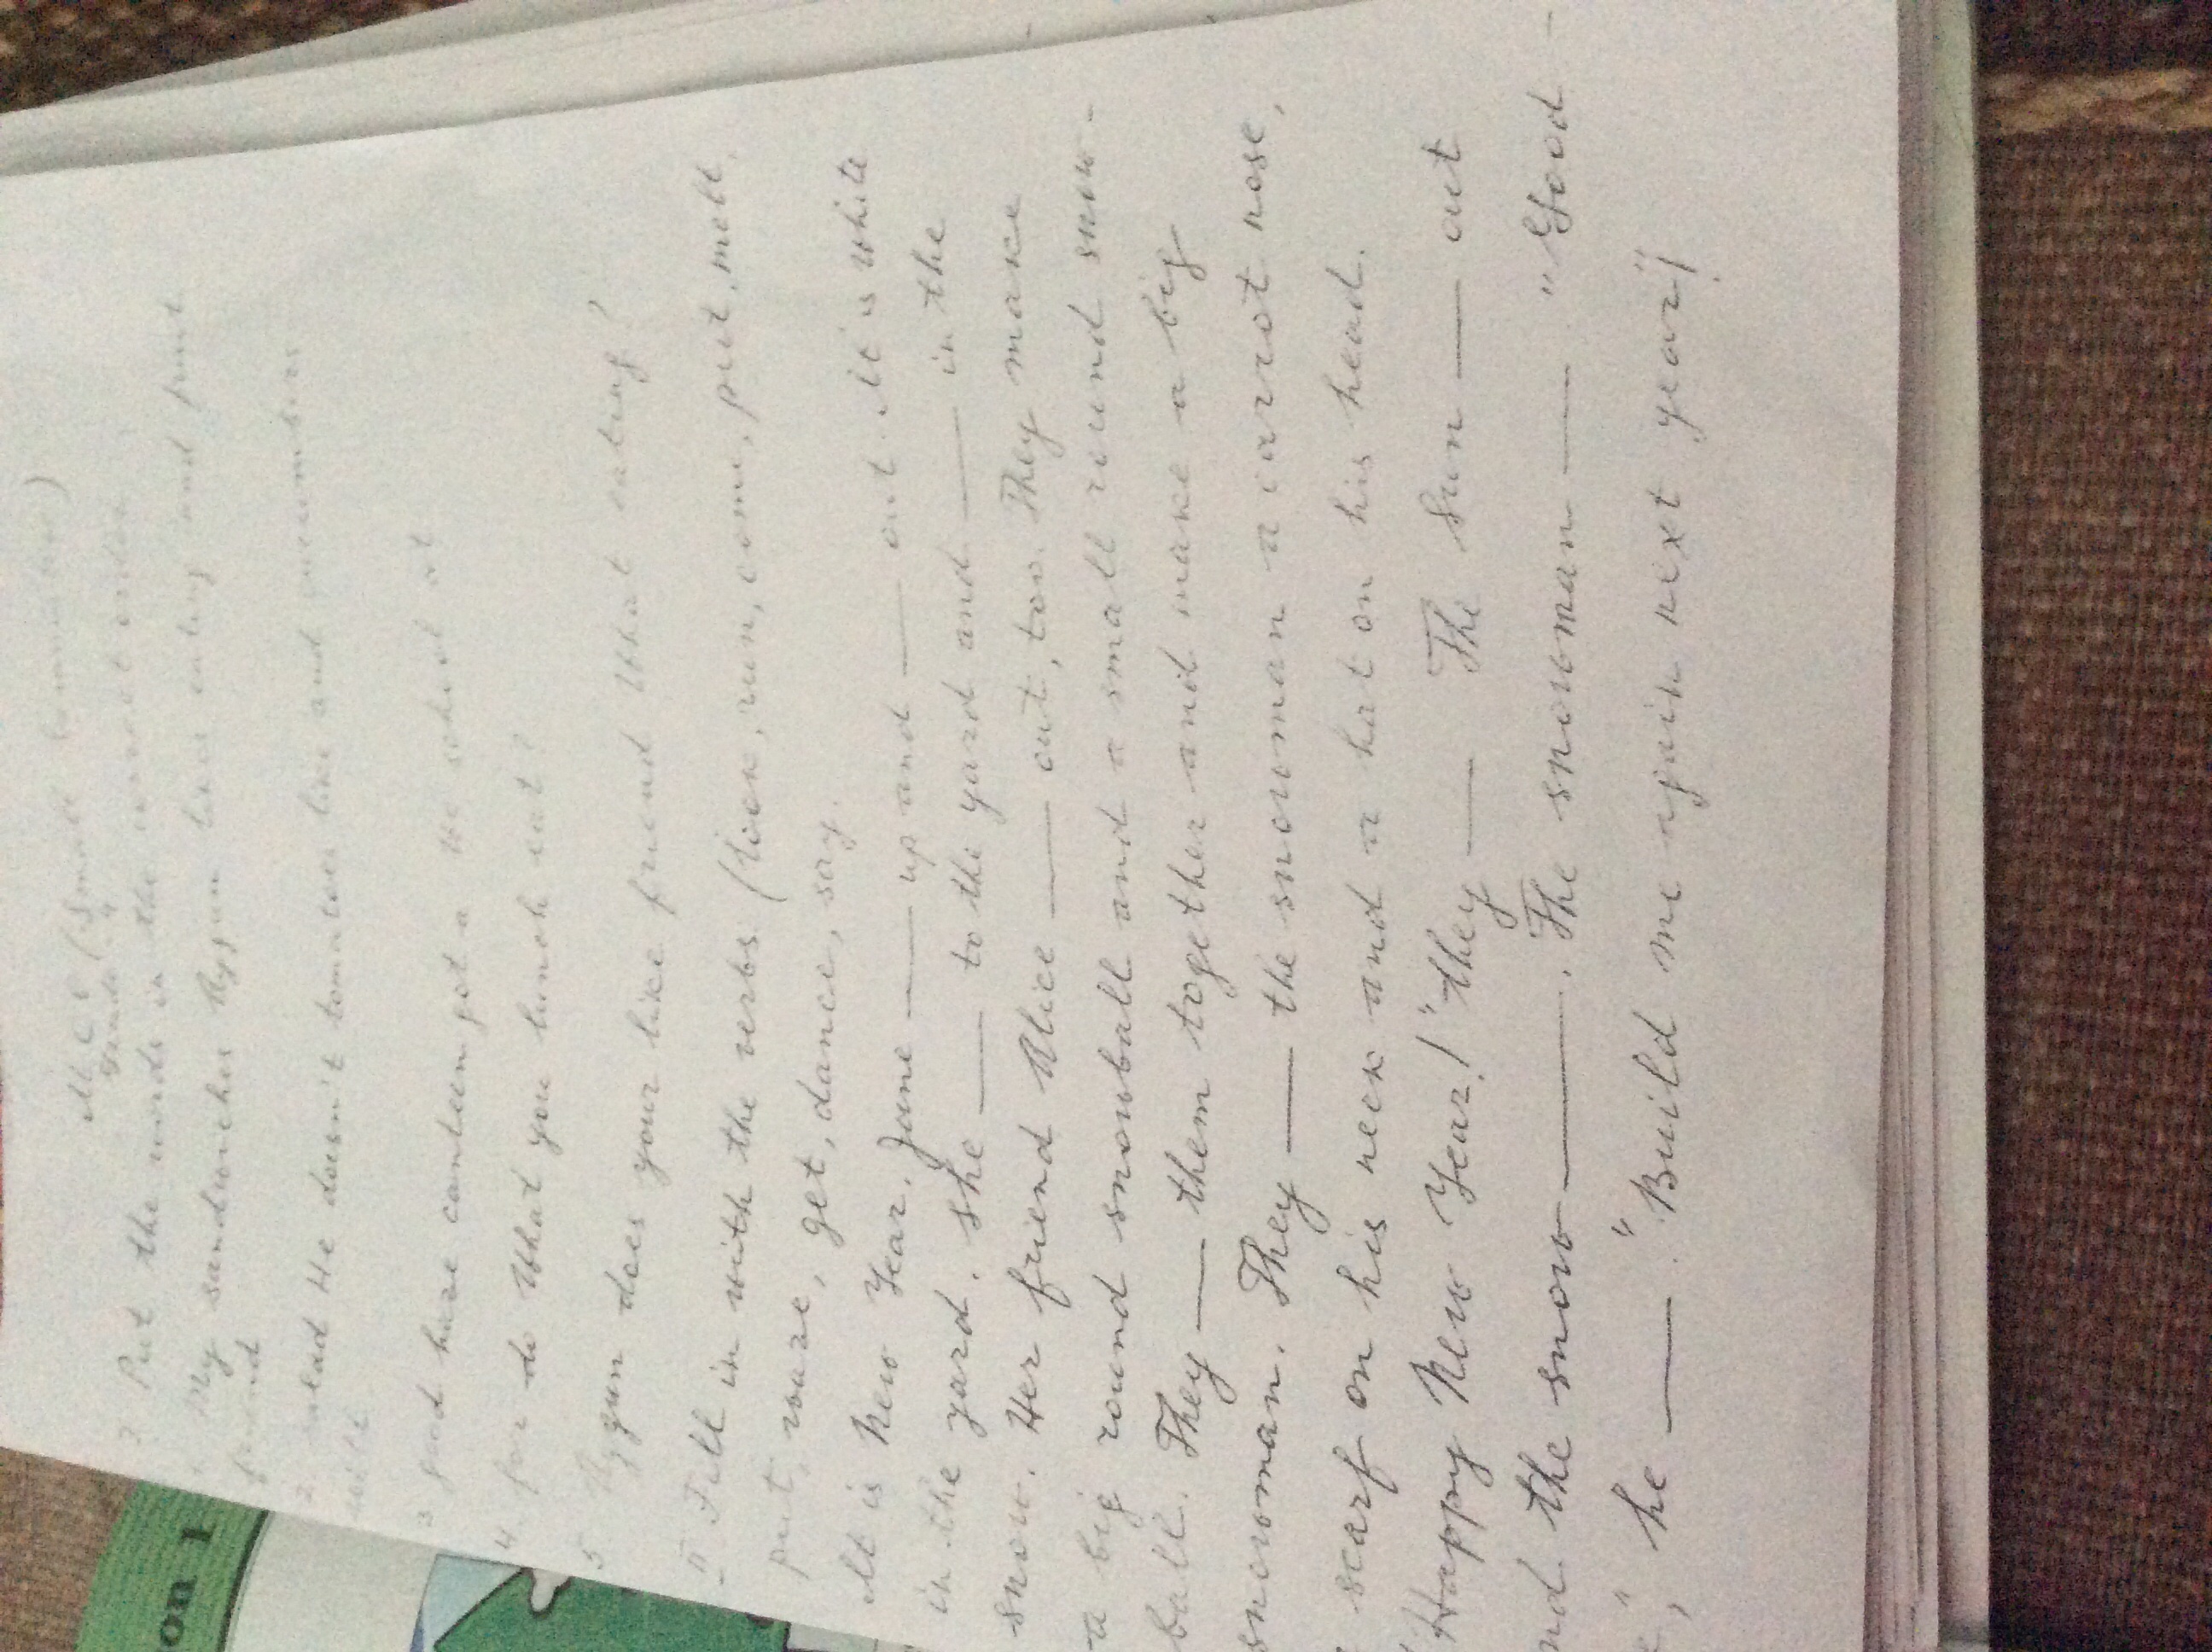 (Small
Grade 4
? Put the words in the correct order
1. My sandwiches Aygun like eating and
friend
2. salad He doesn't tomatoes like and cucumbers
with
3 and have canteen got a We school at
4. for do What you lunch eat?
5. Aygun does your like friend What eating?
II Fill in with the verbs (look, run, come, put, melt,
put, wave, get, dance, say.
It is New Year. Jane — up and — out. It is white
in the yard. she — to the yard and — in the
snow. Her friend Alice — out, too. They make
a big round snowball and a small round snow-
ball. They — them together and make a big
snowman. They — the snowman a carrot nose,
scarf on his neck and a hat on his head.
"Happy New Year!" they — The sun — out
nd the snow —. The snowman — "Good -
," he — . "Build me again next year"!
on 1